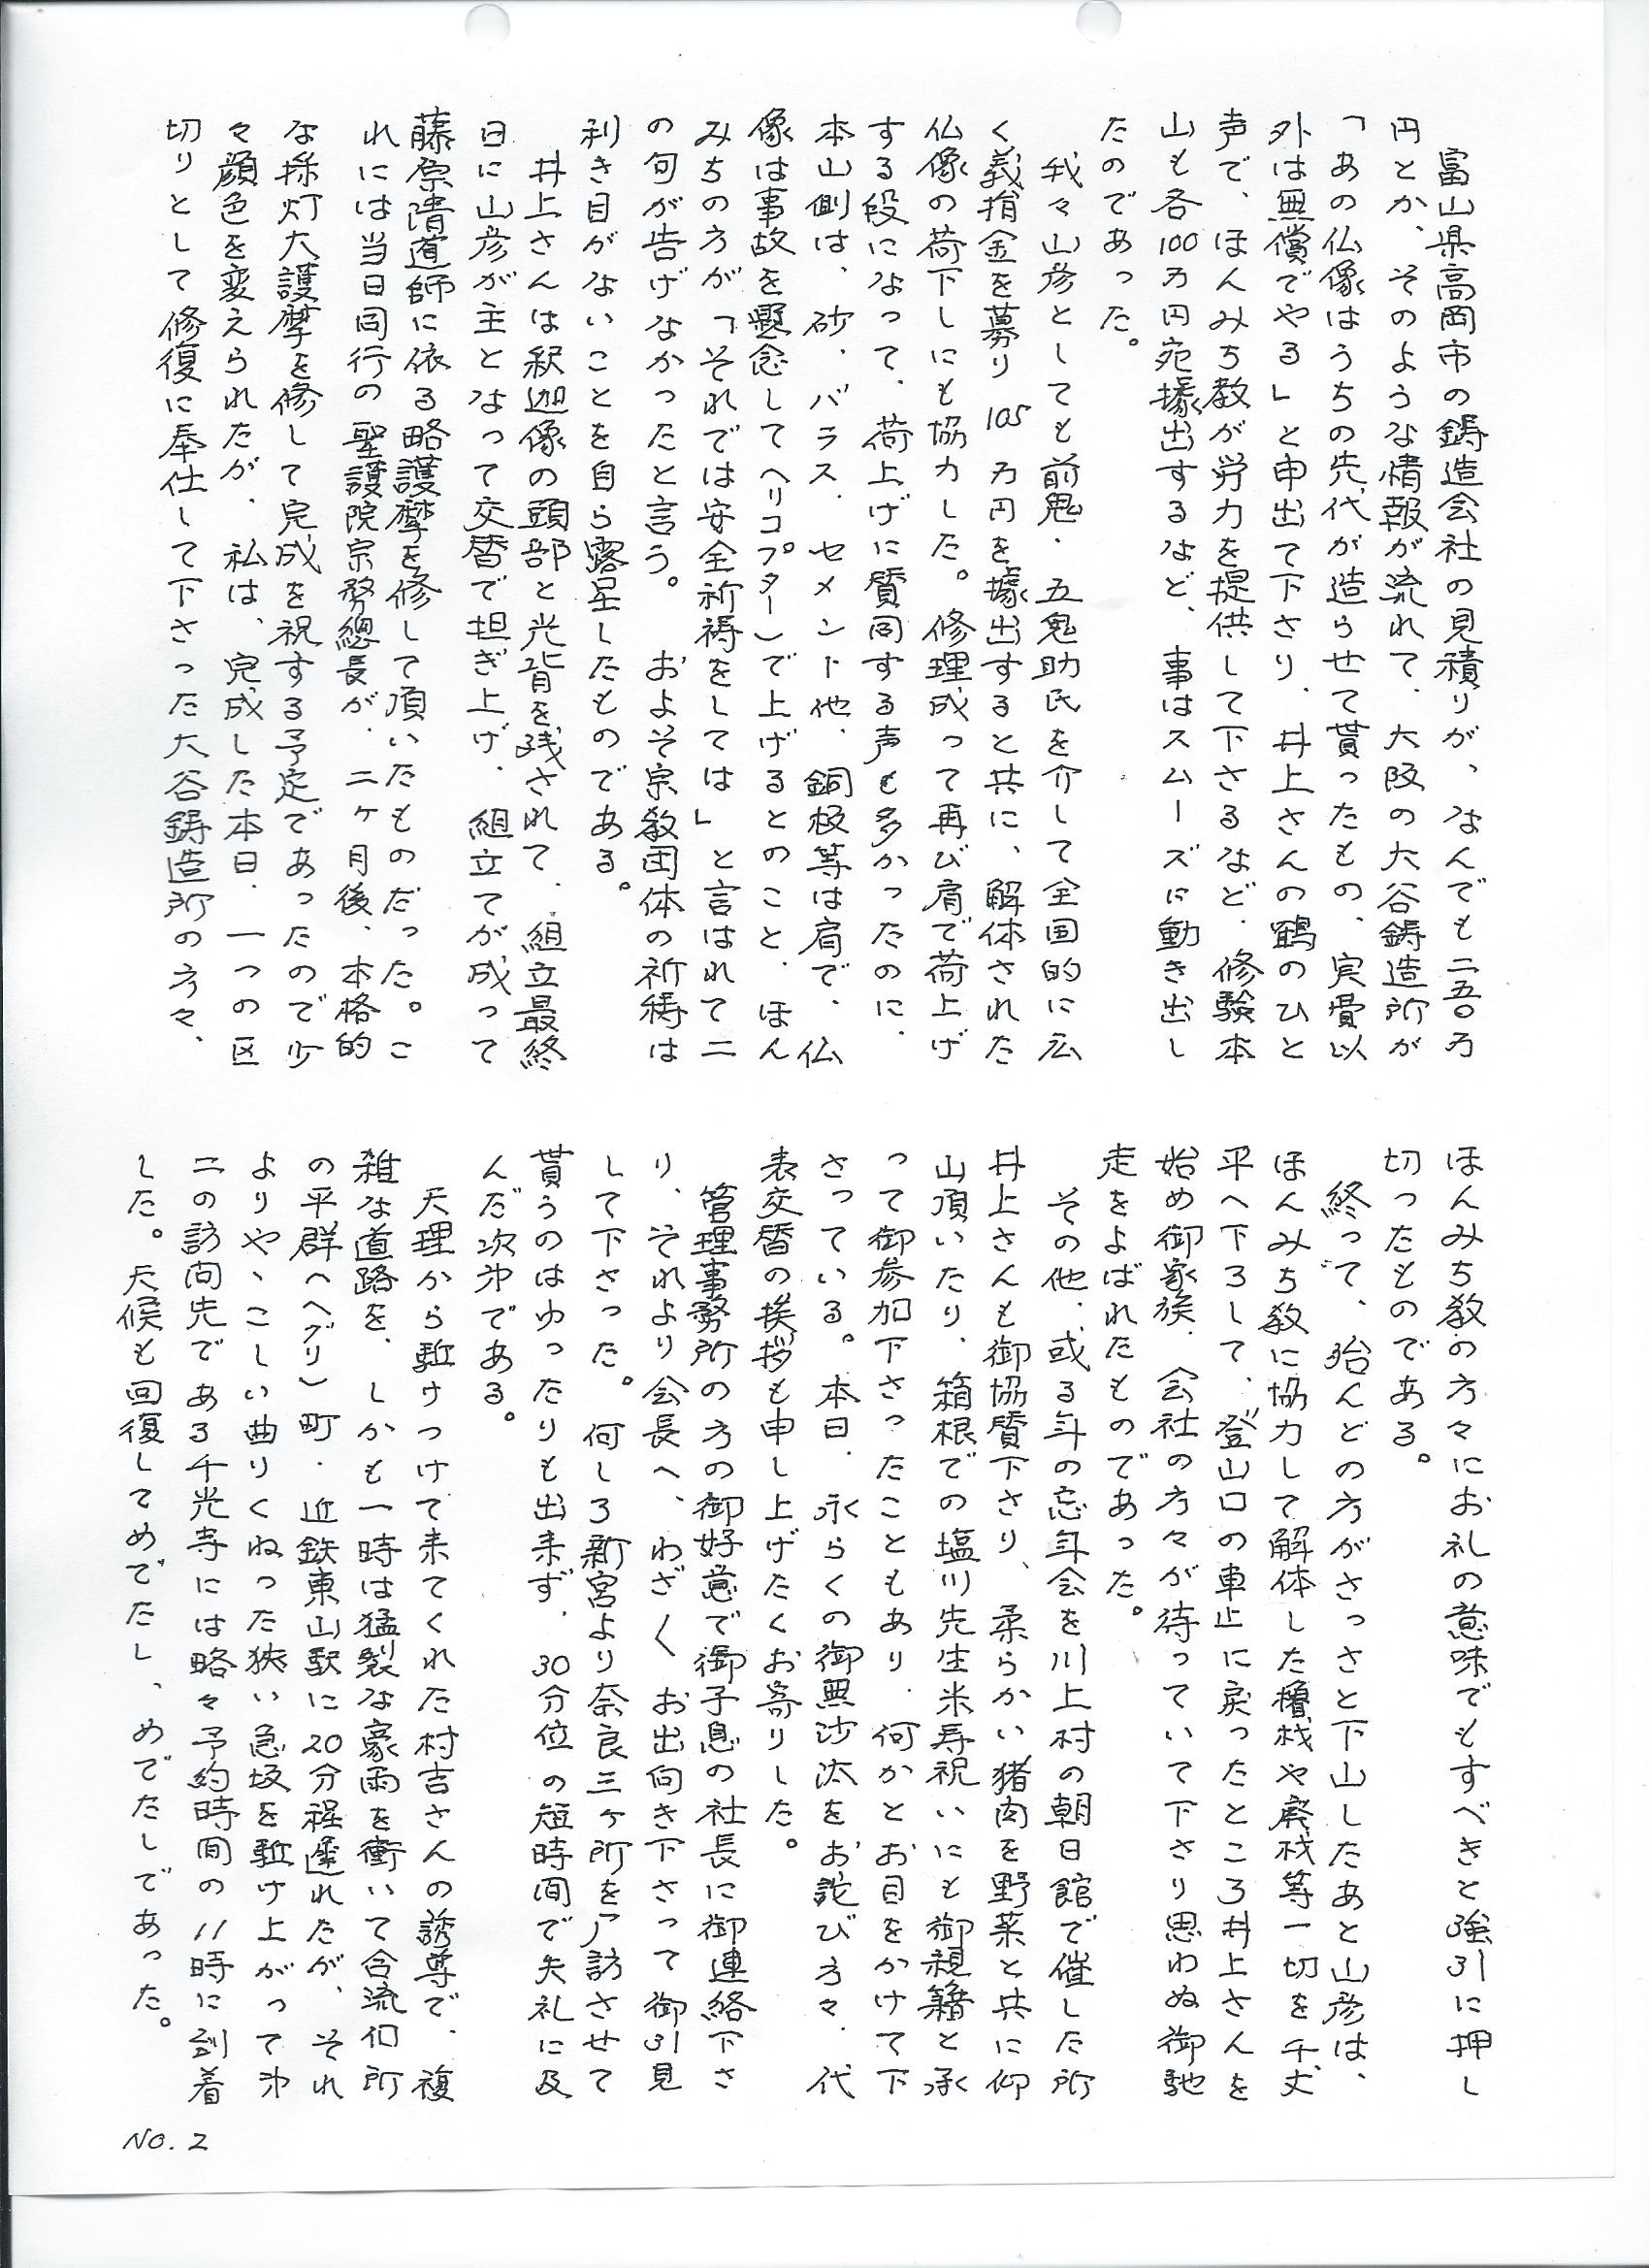 富山県高岡市の鋳造会社の見積りが、なんでも二五〇万
円とか、そのような情報が流れて、大阪の大谷鋳造所が
「あの仏像はうちの先代が造らせて貰ったもの、実費以
外は無償でやる」と申出て下さり、井上さんの鶴のひと
声で、ほんみち教が労力を提供して下さるなど、修験本
山も各100万円宛據出するなど、事はスムーズに動き出し
たのであった。
我々山彦としても前鬼・五鬼助氏を介して全国的に広
く義捐金を募り 105 万円を據出すると共に、解体された
仏像の荷下しにも協力した。修理成って再び肩で荷上げ
する段になって、荷上げに賛同する声も多かったのに、
本山側は、砂、バラス、セメント他、銅板等は肩で、仏
像は事故を懸念してヘリコプター)で上げるとのこと、ほん
みちの方が「それでは安全祈祷をしては」と言はれて二
の句が告げなかったと言う。 およそ宗教団体の祈祷は
利き目がないことを自ら露呈したものである。
井上さんは釈迦像の頭部と光背を残されて、組立最終
日に山彦が主となって交替で担ぎ上げ、組立てが成って
藤原隋道師に依る略護摩を修して頂いたものだった。こ
れには当日同行の聖護院宗務總長が、二ヶ月後、本格的
な採灯大護摩を修して完成を祝する予定であったので少
々顔色を変えられたが、私は、完成した本日、一つの区
切りとして修復に奉仕して下さった大谷鋳造所の方々、
ほんみち教の方々にお礼の意味でもすべきと強引に押し
切ったものである。
終って、殆んどの方がさっさと下山したあと山彦は、
ほんみち教に協力して解体した櫓材や廃材等一切を千丈
平へ下ろして、登山口の車止に戻ったところ井上さんを
始め御家族、会社の方々が待っていて下さり思わぬ御馳
走をよばれたものであった。
その他、或る年の忘年会を川上村の朝日館で催した所
井上さんも御協賛下さり、柔らかい猪肉を野菜と共に仰
山頂いたり、箱根での塩川先生米寿祝いにも御親籍と承
って御参加下さったこともあり、何かとお目をかけて下
さっている。本日、永らくの御無沙汰をお詫び方々、代
表交替の挨拶も申し上げたくお寄りした。
管理事務所の方の御好意で御子息の社長に御連絡下さ
り、それより会長へ、わざ〱お出向き下さって御引見
して下さった。何しろ新宮より奈良三ヶ所を訪させて
貰うのはゆったりも出来ず、30分位の短時間で失礼に及
んだ次第である。
天理から駈けつけて来てくれた村吉さんの誘導で、複
雑な道路を、しかも一時は猛裂な豪雨を衝いて合流個所
の平群(ヘグリ)町・近鉄東山駅に20分程遅れたが、それ
よりやゝこしい曲りくねった狭い急坂を駈け上がって㐧
二の訪問先である千光寺には略々予約時間の11時に到着
した。天候も回復してめでたし、めでたしであった。
NO. 2